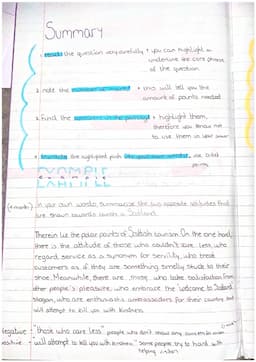 Summary
1. Read the question very carefully + you can highlight or
underline the core phrase
of the question
2. note the + this will tell you the
amount of points needed
3. Find the + highlight them,
therefore you know not
to use them in your
4. use bullet
points
EXAMPLE
(4 marks) In your own words summarise the two opposite attitudes that
are shown towards tourists in Scotland.
Therein lie the polar points of Scottish tourism. On the one hand,
there is the attitude of those who couldn't care less, who
regard service as a synonym for servility, who treat
customers as if they are something smelly stuck to their
shoe. Meanwhile, there are those who take satisfaction from
other people's pleasure, who embrace the 'welcome to Scotland'
slogan, who are enthusiastic ambassadors for their country that
will attempt to kill you with kindness.
Negative: "those who care less" people who don't show any concern
positive: "will attempt to kill you with kindness." Some people try to hard with
helping